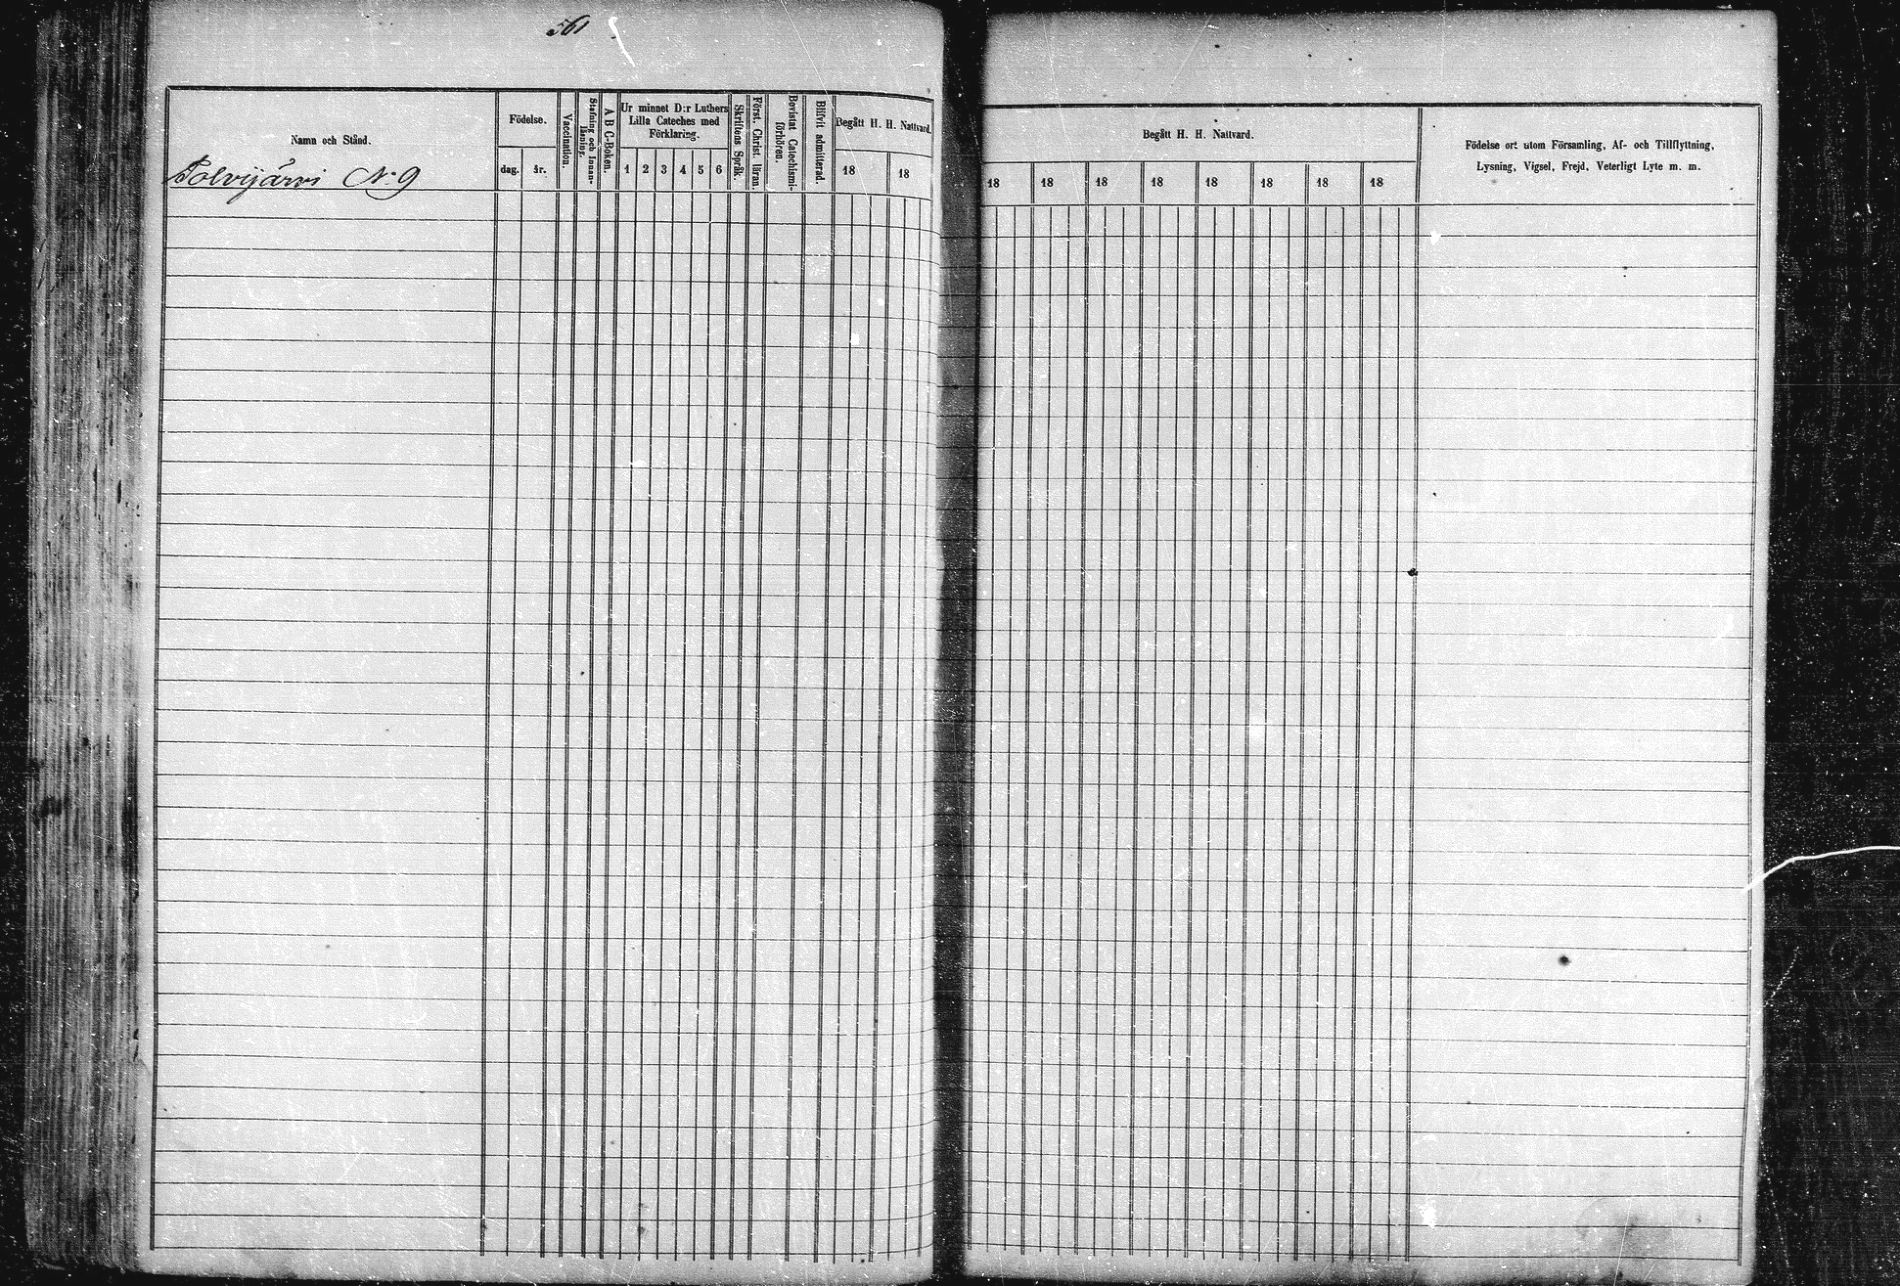 561
Namn och Stånd.
Polvijärvi N:o 9
Födelse.
dag.
år.
Vaccination.
Stafning och Innan-
läsning.
A B C-Boken.
Ur minnet D:r Luthers
Lilla Cateches med
Förklaring.
1 2 3 4 5 6
Skriftens Språk.
Först. Christ. läran.
Bevistat Catechismi-
förhören.
Blifvit admitterad.
Begått H. H. Nattvard.
18 18
Begått H. H. Nattvard.
18 18 18 18 18 18 18 18
Födelse ort utom Församling, Af- och Tillflyttning,
Lysning, Vigsel, Frejd, Veterligt Lyte m. m.